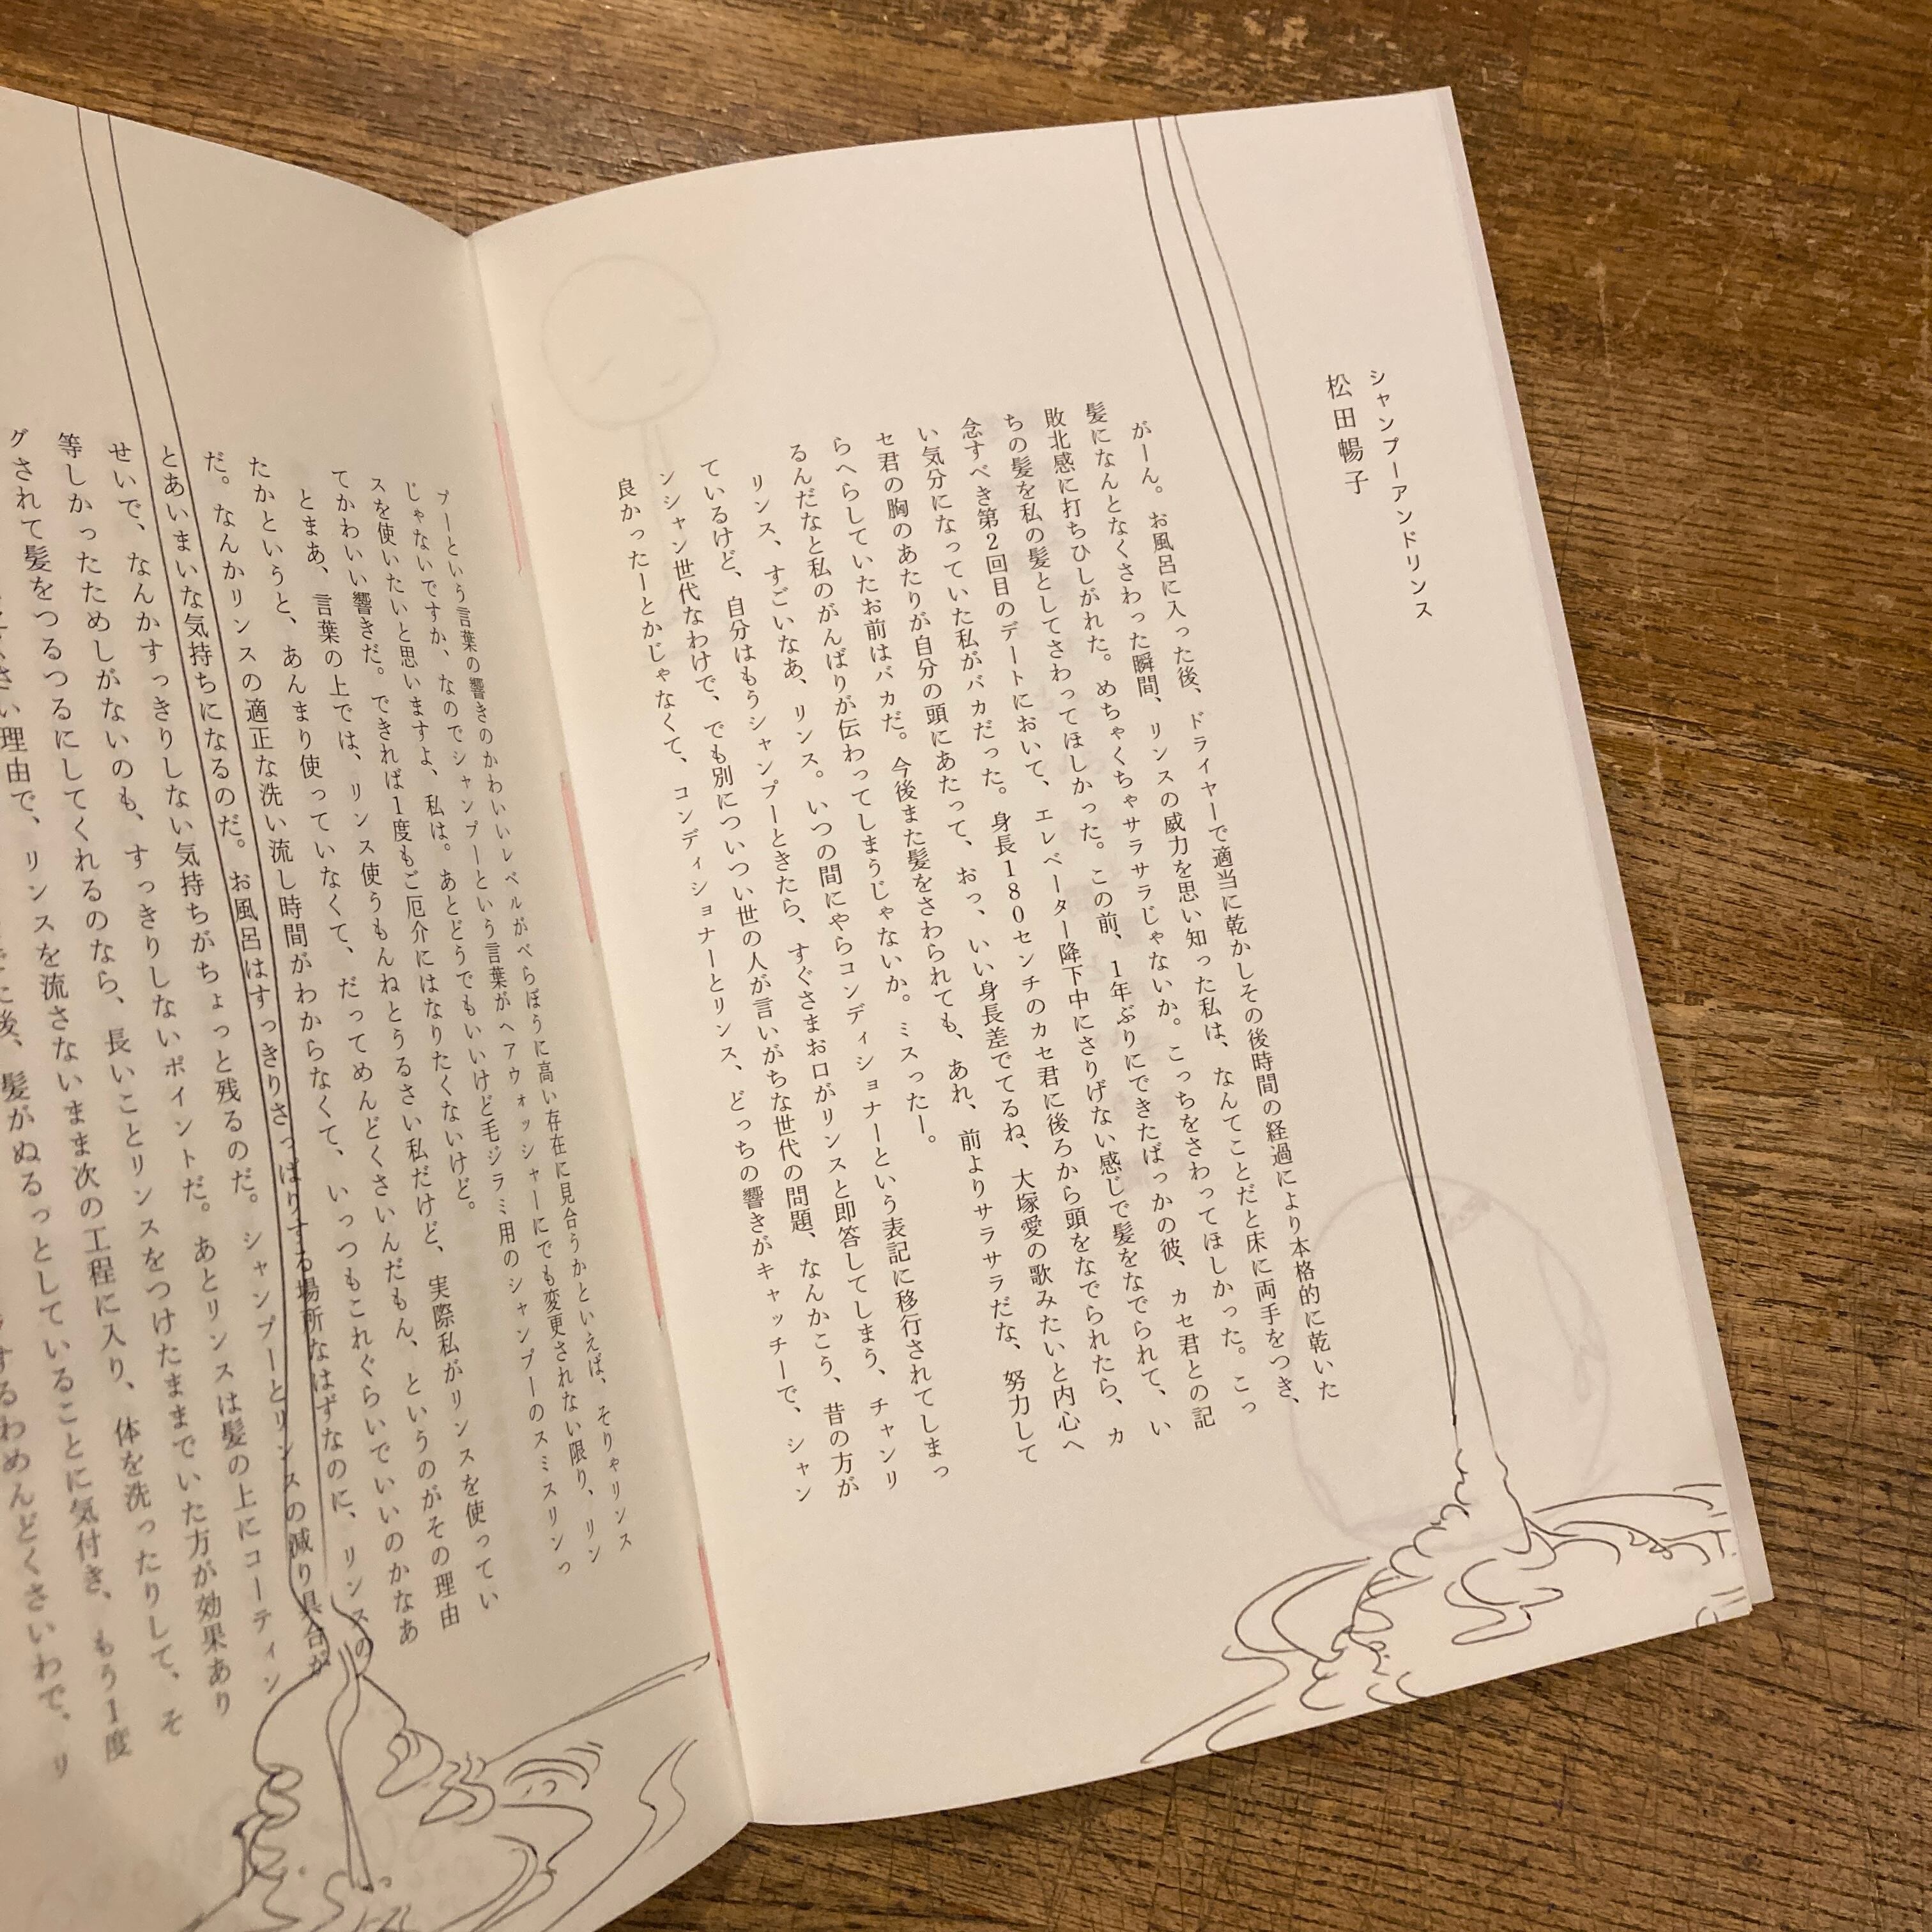 シャンプーアンドリンス
松田暢子
がーん。お風呂に入った後、ドライヤーで適当に乾かしその後時間の経過により本格的に乾いた
髪になんとなくさわった瞬間、リンスの威力を思い知った私は、なんてことだと床に両手をつき、
敗北感に打ちひしがれた。めちゃくちゃサラサラじゃないか。こっちをさわってほしかった。こっ
ちの髪を私の髪としてさわってほしかった。この前、1年ぶりにできたばっかの彼、カセ君との記
念すべき第2回目のデートにおいて、エレベーター降下中にさりげない感じで髪をなでられて、い
い気分になっていた私がバカだった。身長180センチのカセ君に後ろから頭をなでられたら、カ
セ君の胸のあたりが自分の頭にあたって、おっ、いい身長差でてるね、大塚愛の歌みたいと内心へ
らへらしていたお前はバカだ。今後また髪をさわられても、あれ、前よりサラサラだな、努力して
るんだなと私のがんばりが伝わってしまうじゃないか。ミスったー。
リンス、すごいなあ、リンス。いつの間にやらコンディショナーという表記に移行されてしまっ
ているけど、自分はもうシャンプーときたら、すぐさまお口がリンスと即答してしまう、チャンリ
ンシャン世代なわけで、でも別についつい世の人が言いがちな世代の問題、なんかこう、昔の方が
良かったーとかじゃなくて、コンディショナーとリンス、どっちの響きがキャッチーで、シャン
プーという言葉の響きのかわいいレベルがべらぼうに高い存在に見合うかといえば、そりゃリンス
じゃないですか、なのでシャンプーという言葉がヘアウォッシャーにでも変更されない限り、リン
スを使いたいと思いますよ、私は。あとどうでもいいけど毛ジラミ用のシャンプーのスミスリンっ
てかわいい響きだ。できれば1度もご厄介にはなりたくないけど。
とまあ、言葉の上では、リンス使うもんねとうるさい私だけど、実際私がリンスを使ってい
たかというと、あんまり使っていなくて、だってめんどくさいんだもん、というのがその理由
だ。なんかリンスの適正な洗い流し時間がわからなくて、いっつもこれぐらいでいいのかなあ
とあいまいな気持ちになるのだ。お風呂はすっきりさっぱりする場所なはずなのに、リンスの
せいで、なんかすっきりしない気持ちがちょっと残るのだ。シャンプーとリンスの減り具合が
等しかったためしがないのも、すっきりしないポイントだ。あとリンスは髪の上にコーティン
グされて髪をつるつるにしてくれるのなら、長いことリンスをつけたままでいた方が効果あり
理由で、リンスを流さないまま次の工程に入り、体を洗ったりして、そ
後、髪がぬるっとしていることに気付き、もう1度
するわめんどくさいわで、リ